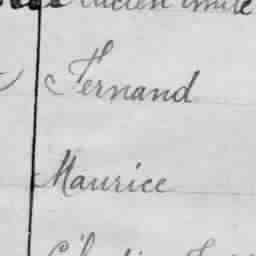 Lucien Emile
Fernand
Maurice